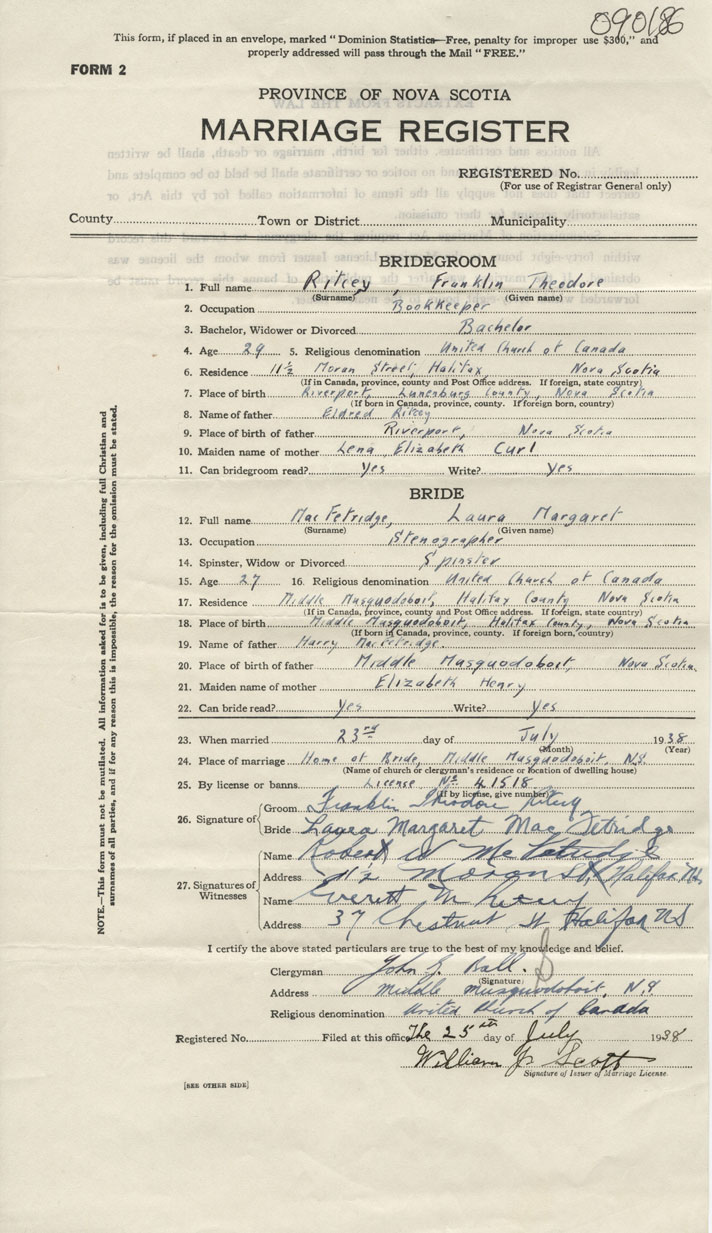 090186
This form, if placed in an envelope, marked "Dominion Statistics—Free, penalty for improper use $300," and
properly addressed will pass through the Mail "FREE."
FORM 2
PROVINCE OF NOVA SCOTIA
MARRIAGE REGISTER
REGISTERED No.
(For use of Registrar General only)
County Town or District Municipality
BRIDEGROOM
1. Full name Ritcey, Franklin Theodore
(Surname) (Given name)
2. Occupation Bookkeeper
3. Bachelor, Widower or Divorced Bachelor
4. Age 29 5. Religious denomination United Church of Canada
6. Residence 11½ Moran Street, Halifax Nova Scotia
(If in Canada, province, county and Post Office address. If foreign, state country)
7. Place of birth Riverport, Lunenburg County, Nova Scotia
(If born in Canada, province, county. If foreign born, country)
8. Name of father Eldred Ritcey
9. Place of birth of father Riverport, Nova Scotia
10. Maiden name of mother Lena Elizabeth Curl
11. Can bridegroom read? Yes Write? Yes
BRIDE
12. Full name MacFetridge, Laura Margaret
(Surname) (Given name)
13. Occupation Stenographer
14. Spinster, Widow or Divorced Spinster
15. Age 27 16. Religious denomination United Church of Canada
17. Residence Middle Musquodoboit, Halifax County Nova Scotia
(If in Canada, province, county and Post Office address. If foreign, state country)
18. Place of birth Middle Musquodoboit, Halifax County, Nova Scotia
(If born in Canada, province, county. If foreign born, country)
19. Name of father Harry MacFetridge.
20. Place of birth of father Middle Musquodoboit, Nova Scotia.
21. Maiden name of mother Elizabeth Henry
22. Can bride read? Yes Write? Yes
23. When married 23rd day of July 1938
(Month) (Year)
24. Place of marriage Home of Bride, Middle Musquodoboit, N.S.
(Name of church or clergyman's residence or location of dwelling house)
25. By license or banns License No 41518
(If by license, give number)
26. Signature of Groom Franklin Theodore Ritcey
Bride Laura Margaret MacFetridge
27. Signatures of Witnesses
Name Robert W McFetridge
Address 11½ Moran St, Halifax NS
Name Everett M Ritcey
Address 37 Chestnut St Halifax NS
I certify the above stated particulars are true to the best of my knowledge and belief.
Clergyman John G. Ball.
(Signature)
Address Middle Musquodoboit, N.S
Religious denomination United Church of Canada
Registered No. Filed at this office The 25th day of July 1938
William J. Scott
Signature of Issuer of Marriage License.
[SEE OTHER SIDE]
NOTE.—This form must not be mutilated. All information asked for is to be given, including full Christian and
surnames of all parties, and if for any reason this is impossible, the reason for the omission must be stated.